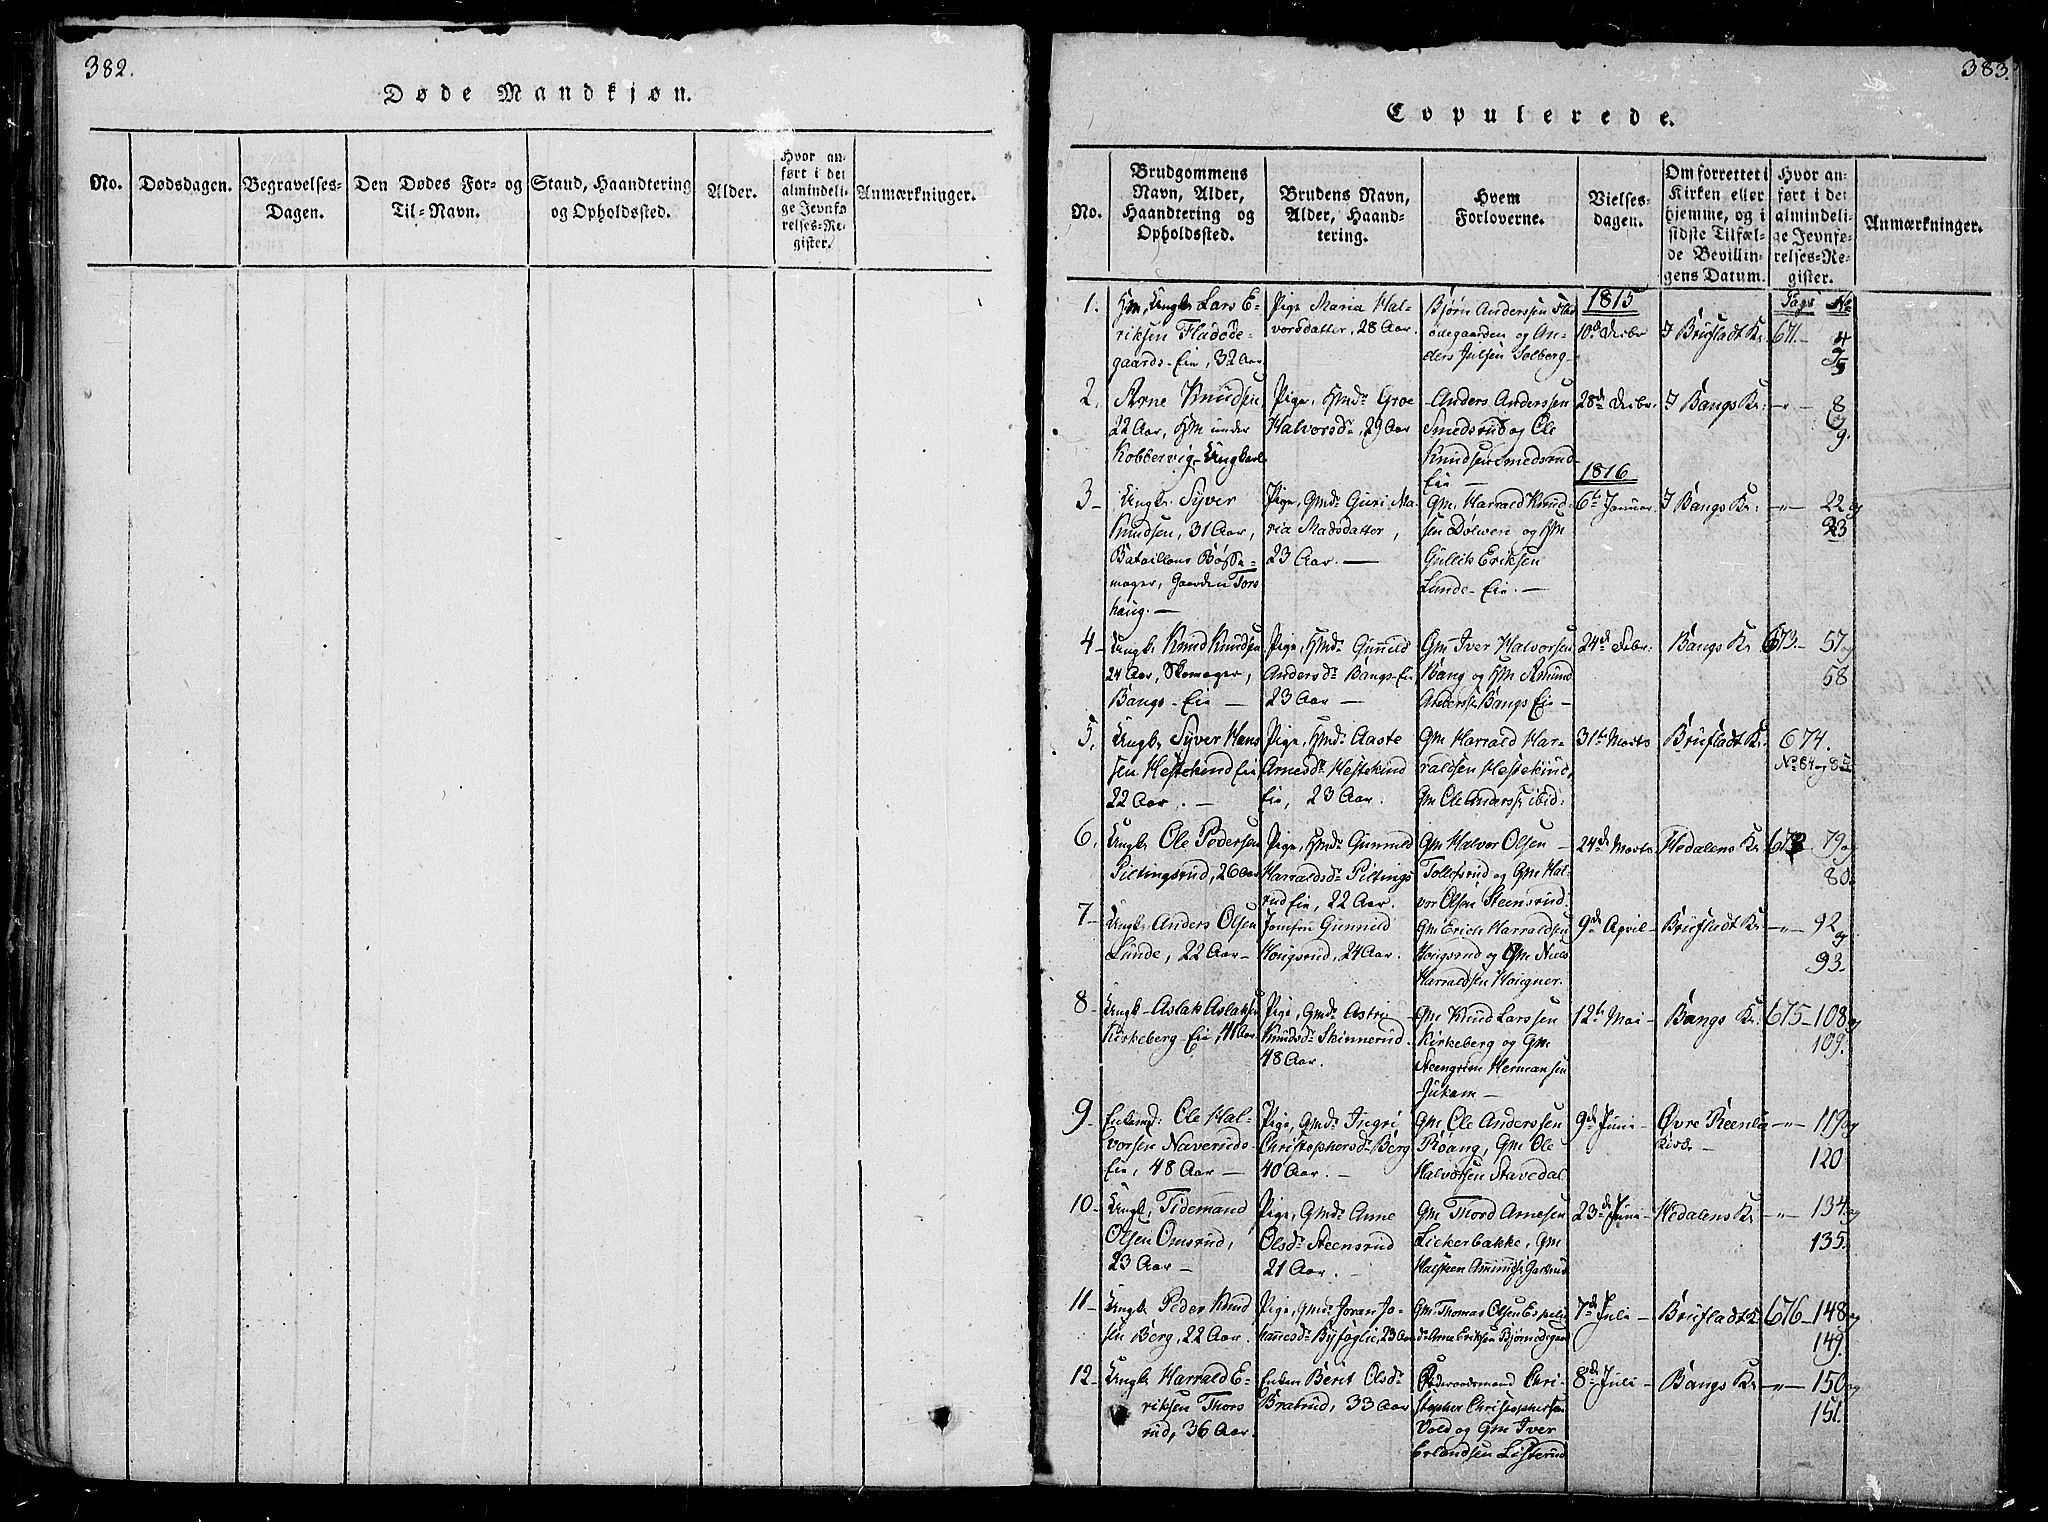 382.
Døde Mandkjøn.
No.
Dødsdagen.
Begravelses-
Dagen.
Den Dødes For- og
Til-Navn.
Stand, Haandtering
og Opholdssted.
Alder.
Hvor an-
ført i det
almindeli-
ge Jevnfø-
relses-Re-
gister.
Anmærkninger.
383.
Copulerede.
No.
Brudgommens
Navn, Alder,
Haandtering og
Opholdssted.
Brudens Navn,
Alder, Haand-
tering.
Hvem
Forloverne.
Vielses-
dagen.
Om forrettet i
Kirken eller
hjemme, og i
sidste Tilfæl-
de Bevillin-
gens Datum.
Hvor an-
ført i det
almindeli-
ge Jevnfø-
relses-Re-
gister.
Anmærkninger.
1.
Hm, Ungk. Lars E-
riksen Fladøde-
gaards-Eie, 32 Aar
Pige Maria Hal-
vorsdatter, 28 Aar.
Bjørn Anderssen Fla
ødegaarden og An-
ders Julsen Solberg-
1815
10de Decbr
I Brufladt K.
Pag. No
671. 4
5
2.
Arne Knudsen
22 Aar, Hm under
Kobbervig-Ungkarl
Pige, Hmds Groe
Halvorsdr, 29 Aar
Anders Anderssen
Smedsrud og Ole
Knudsen Smedsrud-
Eie -
28de Decbr.
I Bangs K.
-"- 8
og
9.
3-
Ungk. Syver
Knudsen, 31 Aar,
Bataillons Bøsse-
mager, Gaarden Tors
haug. -
Pige, Gmds Guri Ma-
ria Madsdatter,
23 Aar. -
Gm Harrald Knud-
sen Dølven og Hm
Gullik Eriksen
Lunde-Eie. -
1816
6te Januar.
I Bangs K.
-"- 22 og
23
4-
Ungk. Knud Knudsen
24 Aar, Skomager,
Bangs-Eie -
Pige, Hmds Gunild
Andersdr Bangs-Eie
23 Aar -
Gm Iver Halvorsen
Bang og Hm Amund
Anderss: Bangs Eie -
24de Febr.
Bangs K.
673.- 57 og
58
5.
Ungk. Syver Hans
sen Hestekind Eie,
22 Aar. -
Pige, Hmds Aaste
Arnesdr Hestekind
Eie, 23 Aar.
Gm Harrald Har-
raldsen Hestekind,
Gm Ole Anderss: ibid:
31te Marts
Brufladt K.
674.
No 84 og 85
6.
Ungk. Ole Pedersen
Piltingsrud, 26 Aar
Pige, Hmds Gunnild
Harraldsdr Piltings
rud Eie, 22 Aar.
Gm Halvor Olsen -
Tollefsrud og Gm Hal-
vor Olsen Steensrud.
24de Marts
Hedalens K.
673 79 og
80.
7-
Ungk. Anders Olsen
Lunde, 22 Aar-
Jomfru Gunnild
Hougsrud, 24 Aar.
Gm Erich Harraldsen
Hougsrud og Gm Niels
Harraldsen Hougner.
9de April-
Brufladt K.
-"- 92
og
93.
8-
Ungk- Aslak Aslaksen
Kirkeberg-Eie, 41 Aar
Pige, Gmds Astri
Knudsdr Skinnerud.
48 Aar.
Gm Knud Larssen
Kirkeberg og Gm
Steengrim Hermansen
Jukam -
12te Mai-
Bangs K.
675-108 og
109.
9-
Enkemd: Ole Hal-
vorsen Naverud-
Eie, 48 Aar -
Pige, Gmds Ingri
Christophersdr Berg
40 Aar. -
Gm Ole Anderssen
Røang, Gm Ole
Halvorsen Stavedal
9de Juni-
Øvre Reenlie
Kirke -
-"- 119 og
120
10-
Ungk. Tidemand
Olsen Omsrud,
23 Aar -
Pige, Gmds Anne
Olsdr Steensrud
21 Aar. -
Gm Thord Arnesen
Liekerbakke, Gm
Halsteen Amunds:
23de Juni-
Hedalens K.
-"- 134 og
135.
11-
Ungk. Peder Knud
sen Berg, 22 Aar.
Pige, Gmds Joran Jo-
hannesdr Byfoglie, 23 Aar
Gm Thomas Olsen Espelie
Arne Eriksen Bjørnødegaard
7de Juli-
Brufladt K.
676-148 og
149.
12-
Ungk. Harrald E-
riksen Thors
rud, 36 Aar.
Enken Berit Olsdr
Bratrud, 33 Aar
Christopher Christophersen
Vold og Gm Iver
Erlandsen Listerud
8de Juli-
Bangs K.
-"- 150 og
151.